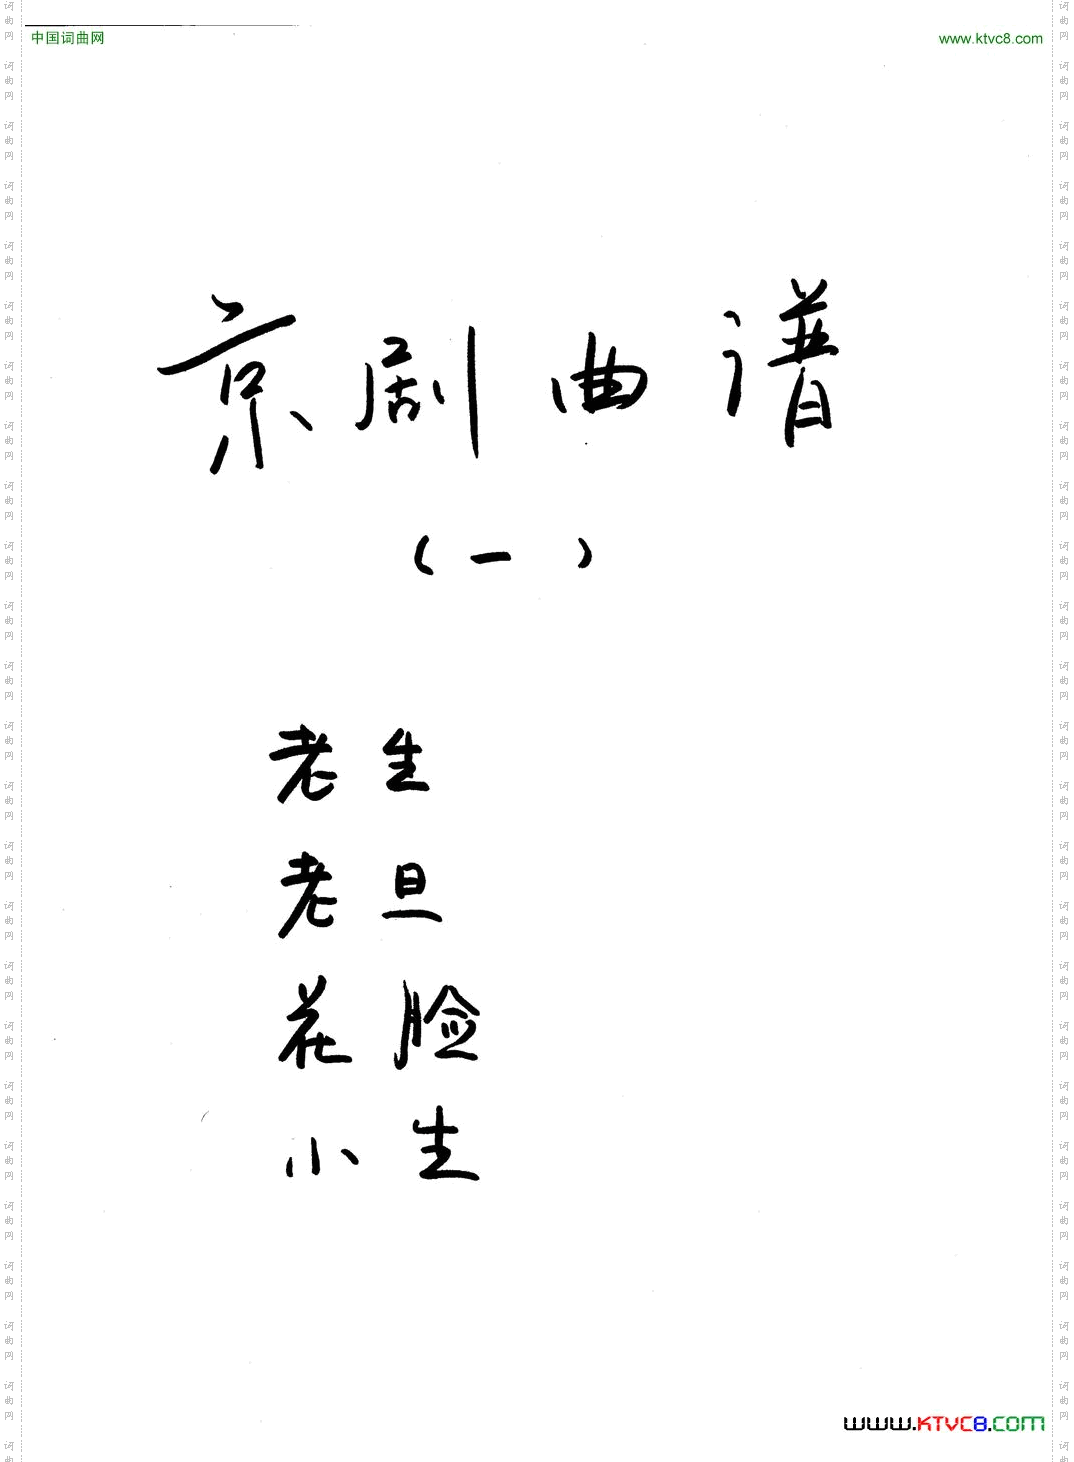 中国词曲网 www.ktvc8.com
京剧曲谱
（一）
老生
老旦
花脸
小生
www.KTVC8.com